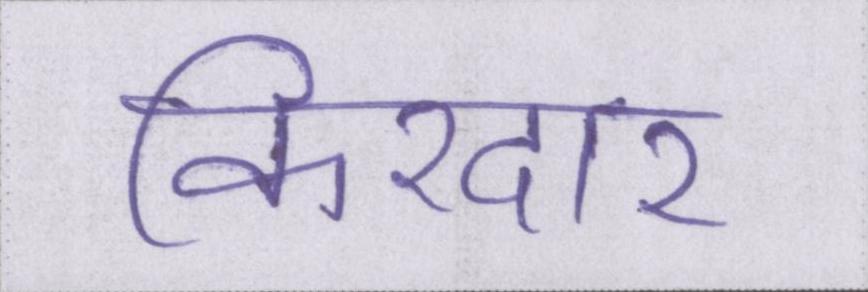 किरदार